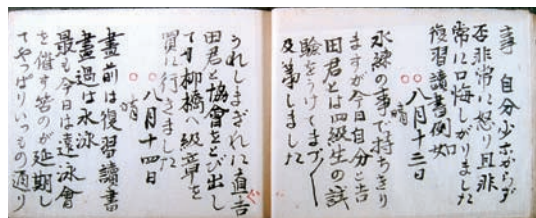 事 自分少からず
否非常に怒り且非
常に口悔しがりました
復習讀書例如
○○八月十三日
晴
水練の事で持ちきり
ますが今日自分と吉
田君とは四級生の試
驗をうけてまづ〱
及第しました
うれしまぎれに直吉
田君と協會をとび出し
て柳橋へ級章を
買に行きました
○○八月十四日
晴
晝前は復習讀書
晝過は水泳
最も今日は遠泳會
を催す筈のが延期し
てやっぱりいつもの通り